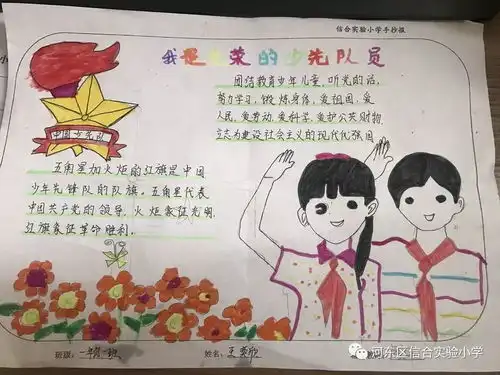 信合实验小学手抄报
我是光荣的少先队员
团结教育少年儿童,听党的话,
努力学习,锻炼身体,爱祖国,爱
人民,爱劳动,爱科学,爱护公共财物,
立志为建设社会主义的现代化强国
中国少先队
五角星加火炬的红旗是中国
少年先锋队的队旗。五角星代表
中国共产党的领导,火炬象征光明,
红旗象征革命胜利。
班级:一年级一班
姓名:王
河东区信合实验小学